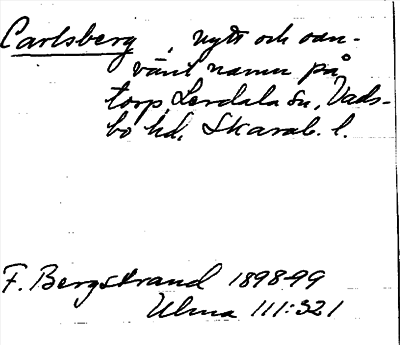 Carlsberg, nytt och oan-
vänt namn på
torp, Lerdala sn, Vads-
bo hd, Skarab. l.
F. Bergstrand 1898-99
Ulma 111:321